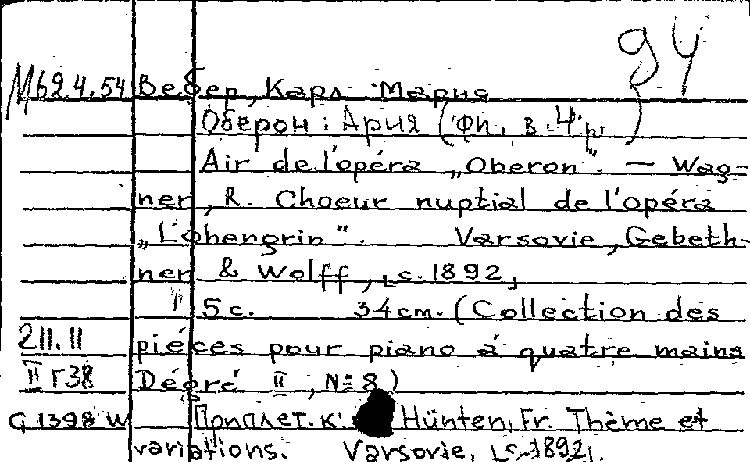 94
М62.4.54 Вебер, Карл Мария
Оберон: Ария (фп. в 4 р.)
Air de l'opéra „Oberon". — Wag-
ner, R. Choeur nuptial de l'opéra
„Lohengrin". Varsovie, Gebeth-
ner & Wolff, [c. 1892]
5 c. 34 cm. (Collection des
211.11 piéces pour piano á quatre mains
II Г38 Dégré II, № 8)
G 1398 W Приплет. к: Hünten, Fr. Thème et
variations. Varsovie, [c. 1892].